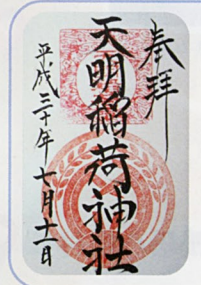 奉拝
天明稲荷神社
平成三十年七月十二日